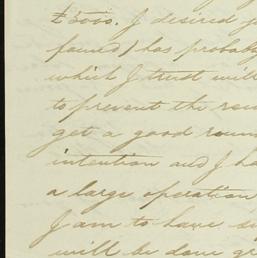 £5000. I desired
found) has probably
which I trust will
to prevent the
get a good round
intention and I ha
a large operation
I am to have
will be done